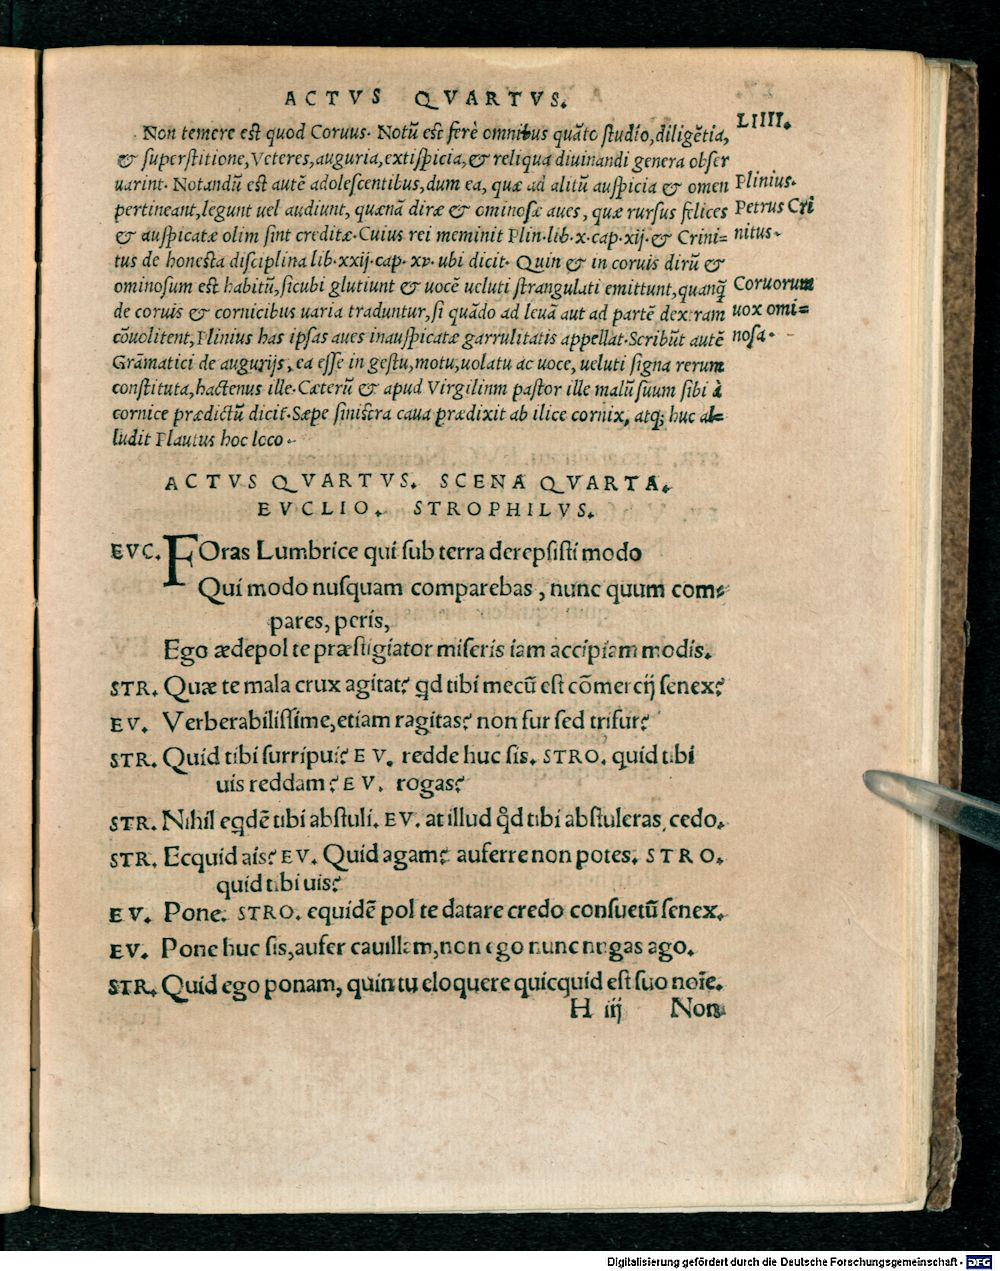 ACTVS QVARTVS.
LIIII.
Non temere est quod Coruus. Notũ est ferè omnibus quãto studio, diligẽtia,
& superstitione, Veteres, auguria, extispicia, & reliqua diuinandi genera obser
uarint. Notandũ est autẽ adolescentibus, dum ea, quæ ad alitũ auspicia & omen
Plinius.
pertineant, legunt uel audiunt, quænã diræ & ominosæ aues, quæ rursus felices
Petrus Cri
& auspicatæ olim sint creditæ. Cuius rei meminit Plin. lib. x. cap. xij. & Crini=
nitus.
tus de honesta disciplina lib. xxij. cap. xv. ubi dicit. Quin & in coruis dirũ &
ominosum est habitũ, sicubi glutiunt & uocẽ ueluti strangulati emittunt, quanꝗ̃
Coruorum
de coruis & cornicibus uaria traduntur, si quãdo ad leuã aut ad partẽ dextram
uox omi=
cõuolitent, Plinius has ipsas aues inauspicatæ garrulitatis appellat. Scribũt autẽ
nosa.
Grãmatici de augurijs, ea esse in gestu, motu, uolatu ac uoce, ueluti signa rerum
constituta, hactenus ille. Cæterũ & apud Virgilinm pastor ille malũ suum sibi à
cornice prædictũ dicit. Sæpe sinistra caua prædixit ab ilice cornix, atq; huc al=
ludit Plautus hoc loco.
ACTVS QVARTVS. SCENA QVARTA.
EVCLIO. STROPHILVS.
EVC. FOras Lumbrice qui sub terra derepsisti modo
Qui modo nusquam comparebas, nunc quum com=
pares, peris,
Ego ædepol te præstigiator miseris iam accipiam modis.
STR. Quæ te mala crux agitat? qd tibi mecũ est cõmercij senex?
EV. Verberabilissime, etiam ragitas? non fur sed trifur?
STR. Quid tibi surripui? EV. redde huc sis. STRO. quid tibi
uis reddam? EV. rogas?
STR. Nihil eqdẽ tibi abstuli. EV. at illud qd̃ tibi abstuleras, cedo.
STR. Ecquid ais? EV. Quid agam? auferre non potes. STRO.
quid tibi uis?
EV. Pone. STRO. equidẽ pol te datare credo consuetũ senex.
EV. Pone huc sis, aufer cauillam, non ego nunc nugas ago.
STR. Quid ego ponam, quin tu eloquere quicquid est suo noĩe.
H iij Non
Digitalisierung gefördert durch die Deutsche Forschungsgemeinschaft - DFG